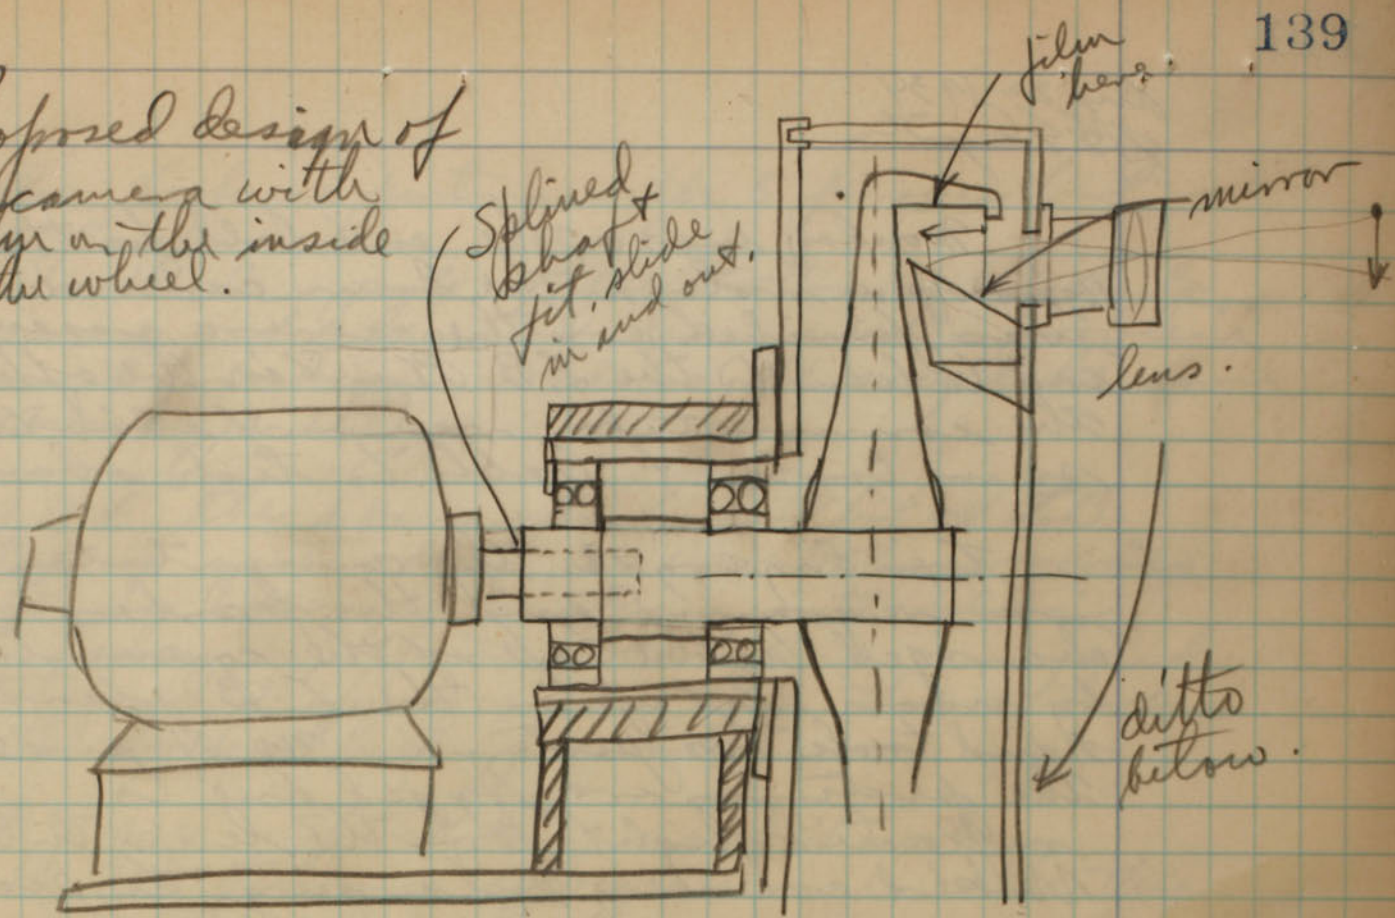 139
film
here.
oposed design of
camera with
on the inside
the wheel.
Splined
shaft
fit, slide
in and out.
mirror
lens.
ditto
below.